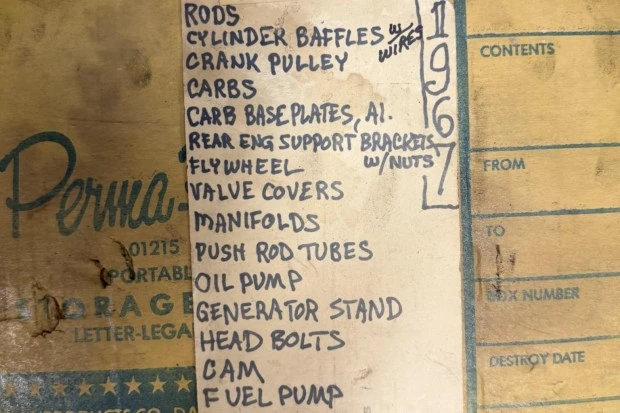 RODS
CYLINDER BAFFLES w/ WIRES
CRANK PULLEY
CARBS
CARB BASEPLATES, Al.
REAR ENG SUPPORT BRACKETS
w/NUTS
FLYWHEEL
VALVE COVERS
MANIFOLDS
PUSH ROD TUBES
OIL PUMP
GENERATOR STAND
HEAD BOLTS
CAM
FUEL PUMP
1967
Perma
01215
PORTABL
STORAGE
LETTER-LEGA
CONTENTS
FROM
TO
BOX NUMBER
DESTROY DATE